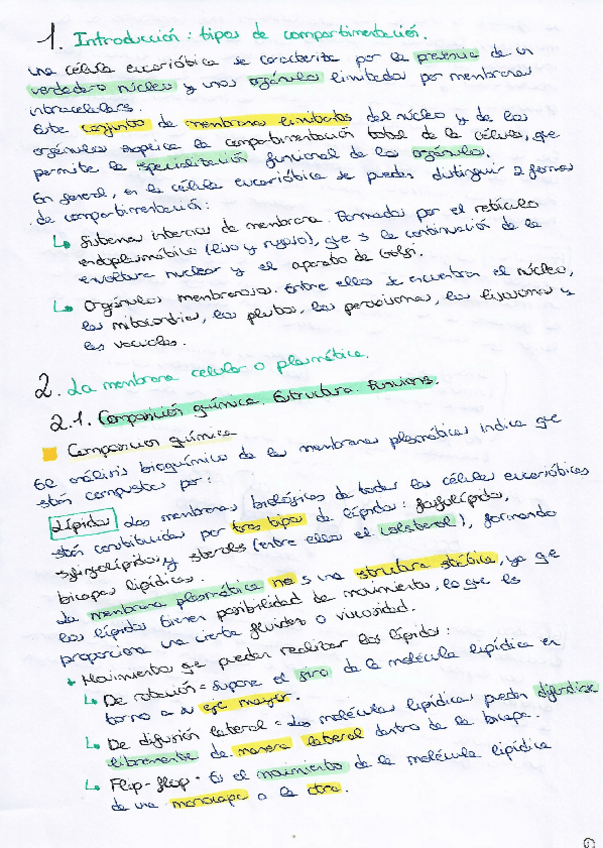 1. Introducción: tipos de compartimentación.
Una célula eucarióbica se caracteriza por la presencia de un
verdadero núcleo y unos orgánulos limitados por membranas
intracelulares.
Este conjunto de membranas limitantes del núcleo y de los
orgánulos explica la compartimentación total de la célula, que
permite la especialización funcional de los orgánulos.
En general, en la célula eucarióbica se pueden distinguir 2 formas
de compartimentación:
↳ Sistemas internos de membrana. Formados por el retículo
endoplasmático (liso y rugoso), que es la continuación de la
envoltura nuclear y el aparato de Golgi.
↳ Orgánulos membranosos. Entre ellos se encuentran el núcleo,
las mitocondrias, los plastos, los peroxisomas, los lisosomas y
las vacuolas.
2. La membrana celular o plasmática.
2.1. Composición química. Estructura. Funciones.
Composición química
El análisis bioquímico de las membranas plasmáticas indica que
están compuestas por:
Lípidos Las membranas biológicas de todas las células eucarióbicas
están constituidas por tres tipos de lípidos: fosfolípidos,
esfingolípidos y esteroles (entre ellos el colesterol), formando
bicapas lipídicas.
La membrana plasmática no es una estructura estática, ya que
los lípidos tienen posibilidad de movimiento, lo que les
proporciona una cierta fluidez o viscosidad.
Movimientos que pueden realizar los lípidos:
↳ De rotación = supone el giro de la molécula lipídica en
torno a su eje mayor.
↳ De difusión lateral = Las moléculas lipídicas pueden difundirse
libremente de manera lateral dentro de la bicapa.
↳ Flip-flop = Es el movimiento de la molécula lipídica
de una monocapa a la otra.
①